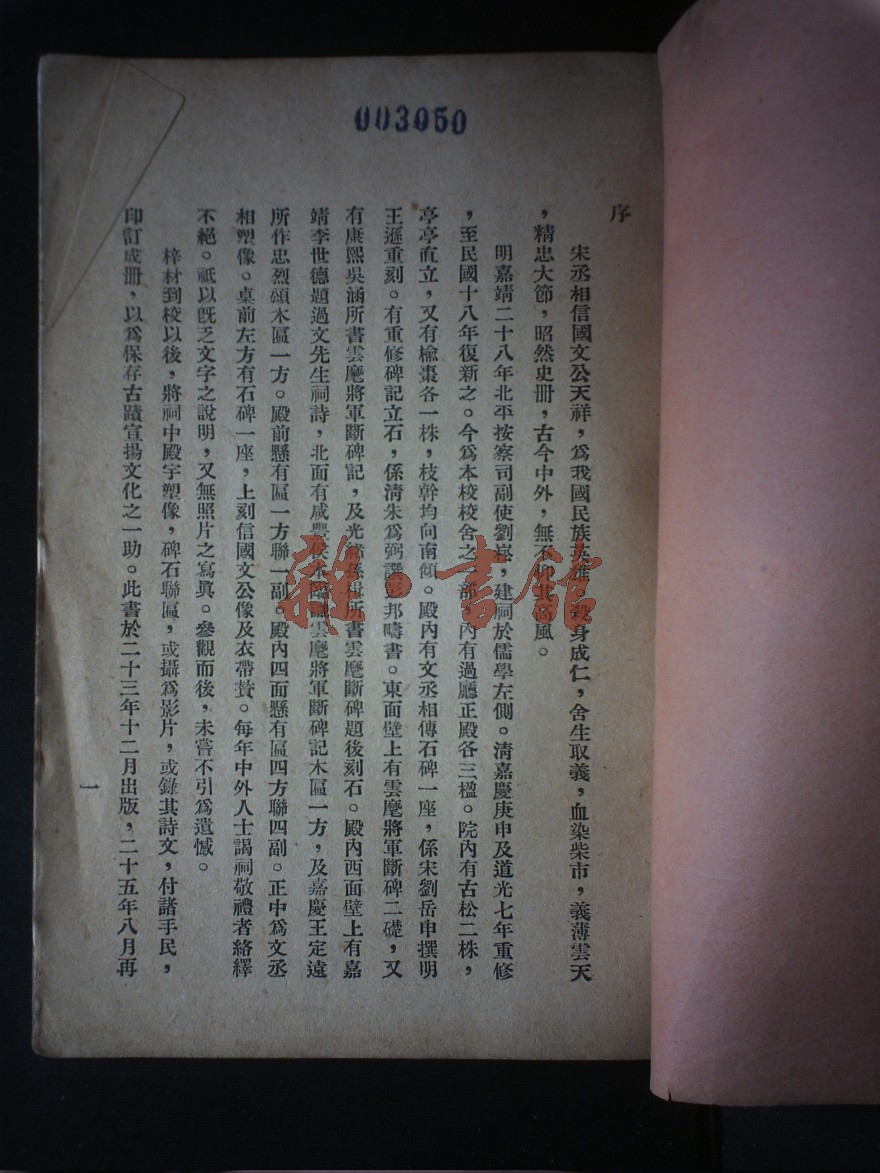 003050
序
宋丞相信國文公天祥，為我國民族英雄，殺身成仁，舍生取義，血染柴市，義薄雲天
，精忠大節，昭然史册，古今中外，無不仰其高風。
明嘉靖二十八年北平按察司副使劉崧，建祠於儒學左側。清嘉慶庚申及道光七年重修
，至民國十八年復新之。今為本校校舍之一部，內有過廳正殿各三楹。院內有古松二株，
亭亭直立，又有楡棗各一株，枝幹均向南傾。殿內有文丞相傳石碑一座，係宋劉岳申撰明
王遜重刻。有重修碑記立石，係清朱為弼譔彭邦疇書。東面壁上有雲麾將軍斷碑二礎，又
有康熙吳涵所書雲麾將軍斷碑記，及光緒孫楫所書雲麾斷碑題後刻石。殿內西面壁上有嘉
靖李世德題過文先生祠詩，北面有咸豐侯木臨識雲麾將軍斷碑記木匾一方，及嘉慶王定遠
所作忠烈頌木匾一方。殿前懸有匾一方聯一副。殿內四面懸有匾四方聯四副。正中為文丞
相塑像。桌前左方有石碑一座，上刻信國文公像及衣帶贊。每年中外人士謁祠敬禮者絡繹
不絕。祇以旣乏文字之說明，又無照片之寫眞。參觀而後，未嘗不引為遺憾。
梓材到校以後，將祠中殿宇塑像，碑石聯匾，或攝為影片，或錄其詩文，付諸手民，
印訂成册，以為保存古蹟宣揚文化之一助。此書於二十三年十二月出版，二十五年八月再
一
雜·書館